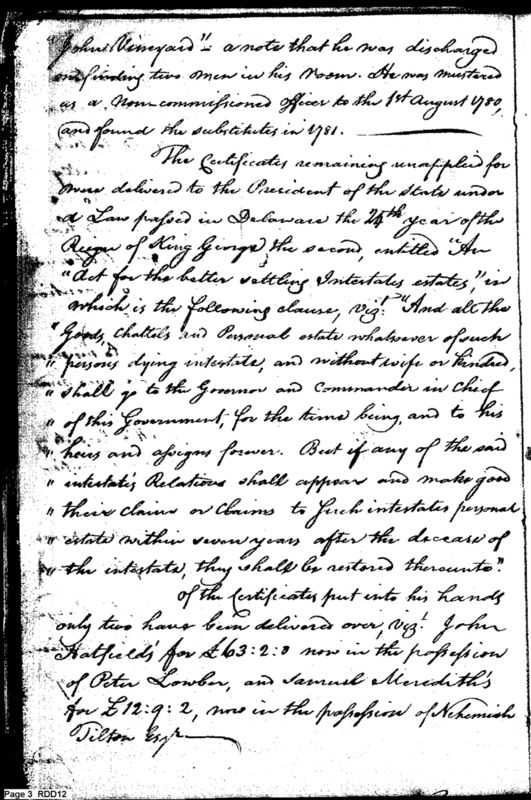 "John Vineyard" – a note that he was discharged
on finding two men in his room. He was mustered
as a Non-commissioned officer to the 1st August 1780,
and found the substitutes in 1781.
The Certificates remaining unapplied for
were delivered to the President of the State under
a Law passed in Delaware the 24th year of the
Reign of King George the second, entitled "An
"Act for the better settling Intestates estates", in
which is the following clause, Vizt. "And all the
"Goods, Chattels and Personal estate whatsoever of such
"persons dying intestate, and without wife or kindred,
"shall go to the Governor and Commander in Chief
"of this Government, for the time being, and to his
"heirs and assigns forever. But if any of the said
"intestate's Relations shall appear and make good
"their claim or claims to such intestates personal
"estate within seven years after the decease of
"the intestate, they shall be restored thereunto."
Of the Certificates put into his hands
only two have been delivered over, Vizt. John
Hatfields for £63:2:0 now in the possession
of Peter Lowber, and Samuel Meredith's
for £12:9:2, now in the possession of Nehemiah
Tilton Esqr
Page 3 RDD12